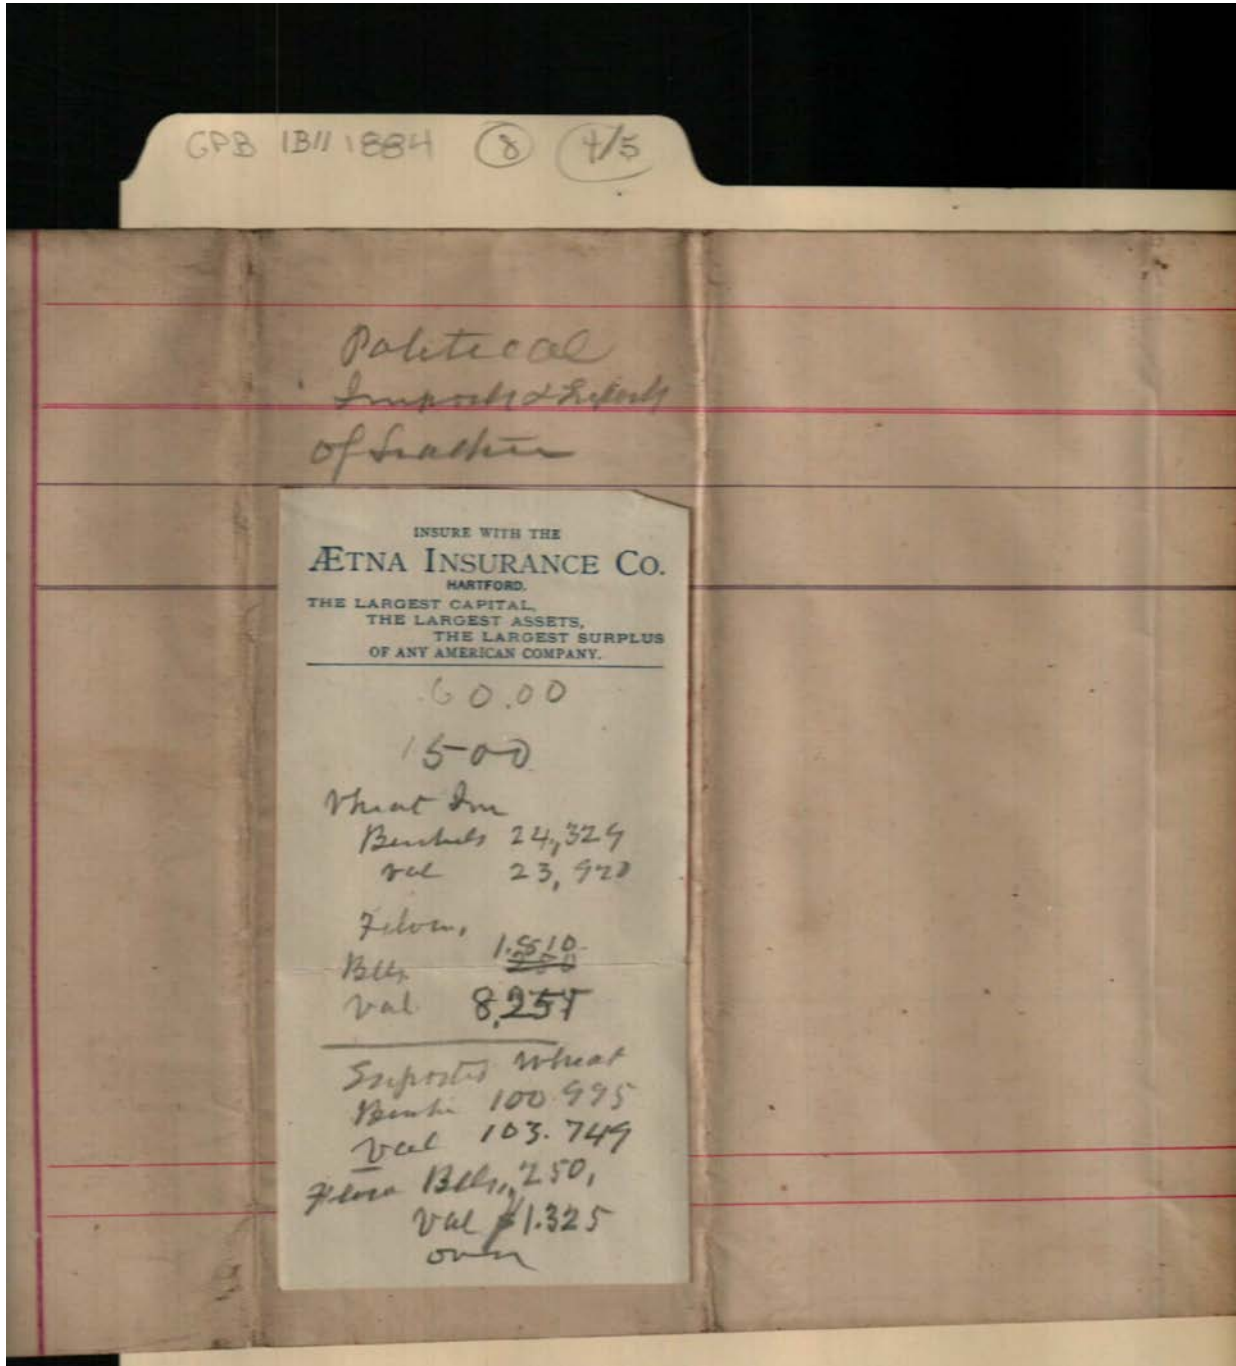 GPB IBII 1884 8 4/5
Political
Imports & Exports
of
INSURE WITH THE
ÆTNA INSURANCE CO.
HARTFORD.
THE LARGEST CAPITAL,
THE LARGEST ASSETS,
THE LARGEST SURPLUS
OF ANY AMERICAN COMPANY.
60.00
1500
Wheat Im
Bushels 24,329
val 23,920
Flour,
1.510
Blls
Val 8,257
Exported Wheat
Bushe 100.995
Val 103.749
Flour Blls, 250,
Val $1.325
over